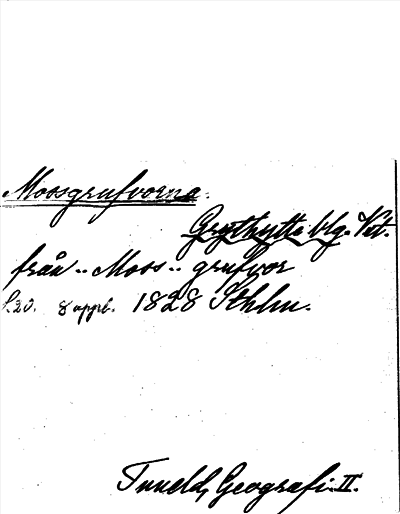 Mossgrufvorna.
Grythytte blg. Vet.
från "Moss" grufvor
s.20. 8 uppl. 1828 Sthlm.
Tuneld, Geografi. II.